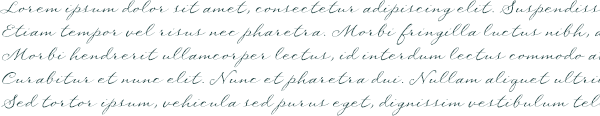 Lorem ipsum dolor sit amet, consectetur adipiscing elit. Suspendiss
Etiam tempor vel risus nec pharetra. Morbi fringilla luctus nibh, a
Morbi hendrerit ullamcorper lectus, id interdum lectus commodo a
Curabitur et nunc elit. Nunc et pharetra dui. Nullam aliquet ultri
Sed tortor ipsum, vehicula sed purus eget, dignissim vestibulum tel